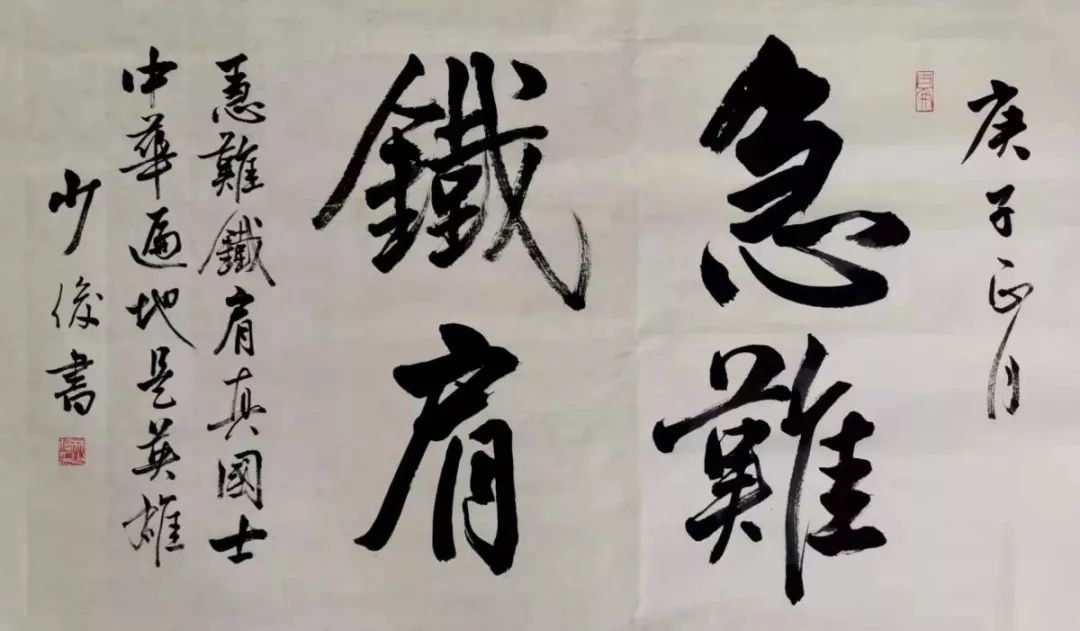 庚子正月
急難
鐵肩
急難鐵肩真國士
中華遍地是英雄
少俊書